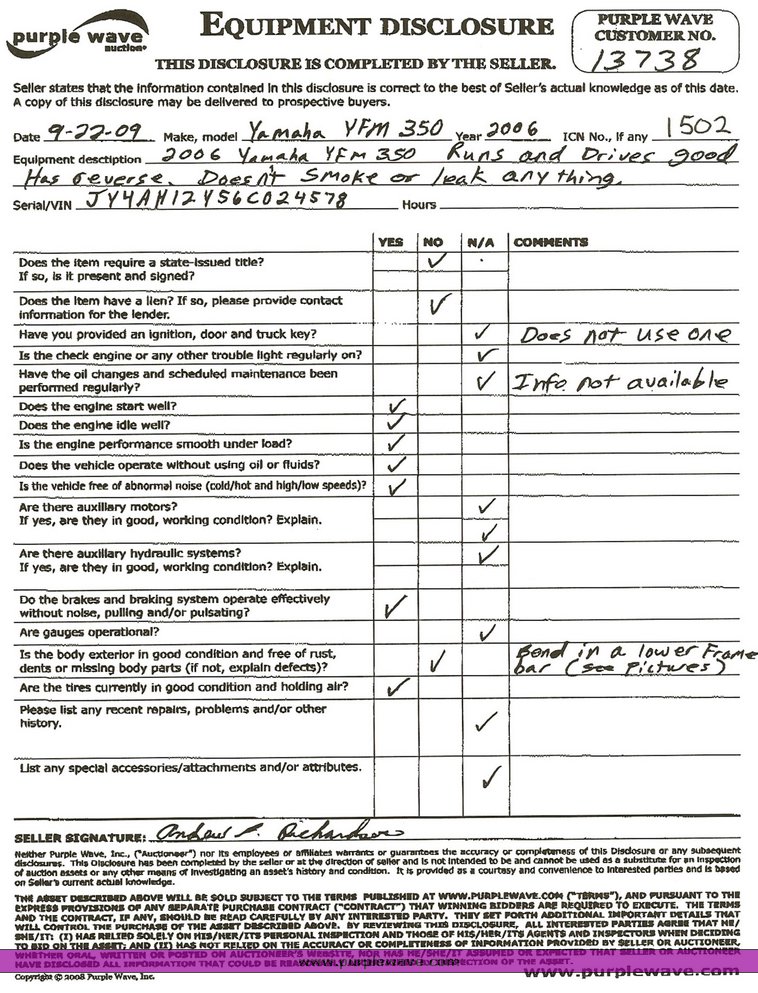 purple wave
auction®
EQUIPMENT DISCLOSURE
THIS DISCLOSURE IS COMPLETED BY THE SELLER.
PURPLE WAVE
CUSTOMER NO.
13738
Seller states that the information contained in this disclosure is correct to the best of Seller's actual knowledge as of this date.
A copy of this disclosure may be delivered to prospective buyers.
Date 9-22-09 Make, model Yamaha YFM 350 Year 2006 ICN No., if any 1502
Equipment description 2006 Yamaha YFM 350 Runs and Drives good
Has reverse. Doesn't smoke or leak anything.
Serial/VIN JY4AH12Y56C024578 Hours
YES NO N/A COMMENTS
Does the item require a state-issued title? ✓
If so, is it present and signed?
Does the item have a lien? If so, please provide contact ✓
information for the lender.
Have you provided an ignition, door and truck key? ✓ Does not use one
Is the check engine or any other trouble light regularly on? ✓
Have the oil changes and scheduled maintenance been
performed regularly? ✓ Info not available
Does the engine start well? ✓
Does the engine idle well? ✓
Is the engine performance smooth under load? ✓
Does the vehicle operate without using oil or fluids? ✓
Is the vehicle free of abnormal noise (cold/hot and high/low speeds)? ✓
Are there auxiliary motors? ✓
If yes, are they in good, working condition? Explain. ✓
Are there auxiliary hydraulic systems? ✓
If yes, are they in good, working condition? Explain.
Do the brakes and braking system operate effectively
without noise, pulling and/or pulsating? ✓
Are gauges operational? ✓
Is the body exterior in good condition and free of rust, Bend in a lower Frame
dents or missing body parts (if not, explain defects)? ✓ bar (see Pictures)
Are the tires currently in good condition and holding air? ✓
Please list any recent repairs, problems and/or other
history. ✓
List any special accessories/attachments and/or attributes. ✓
SELLER SIGNATURE: Andrew F. Richardson
Neither Purple Wave, Inc., ("Auctioneer") nor its employees or affiliates warrants or guarantees the accuracy or completeness of this Disclosure or any subsequent
disclosures. This Disclosure has been completed by the seller or at the direction of seller and is not intended to be and cannot be used as a substitute for an inspection
of auction assets or any other means of investigating an asset's history and condition. It is provided as a courtesy and convenience to interested parties and is based
on Seller's current actual knowledge.
THE ASSET DESCRIBED ABOVE WILL BE SOLD SUBJECT TO THE TERMS PUBLISHED AT WWW.PURPLEWAVE.COM ("TERMS"), AND PURSUANT TO THE
EXPRESS PROVISIONS OF ANY SEPARATE PURCHASE CONTRACT ("CONTRACT") THAT WINNING BIDDERS ARE REQUIRED TO EXECUTE. THE TERMS
AND THE CONTRACT, IF ANY, SHOULD BE READ CAREFULLY BY ANY INTERESTED PARTY. THEY SET FORTH ADDITIONAL IMPORTANT DETAILS THAT
WILL CONTROL THE PURCHASE OF THE ASSET DESCRIBED ABOVE. BY REVIEWING THIS DISCLOSURE, ALL INTERESTED PARTIES AGREE THAT HE/
SHE/IT: (I) HAS RELIED SOLELY ON HIS/HER/ITS PERSONAL INSPECTION AND THOSE OF HIS/HER/ITS AGENTS AND INSPECTORS WHEN DECIDING
TO BID ON THE ASSET; AND (II) HAS NOT RELIED ON THE ACCURACY OR COMPLETENESS OF INFORMATION PROVIDED BY SELLER OR AUCTIONEER,
WHETHER ORAL, WRITTEN OR POSTED ON AUCTIONEER'S WEBSITE, NOR HAS HE/SHE/IT ASSUMED OR EXPECTED THAT SELLER OR AUCTIONEER
HAVE DISCLOSED ALL INFORMATION THAT COULD BE INSPECTION OF THE ASSET.
Copyright © 2008 Purple Wave, Inc.
www.purplewave.com